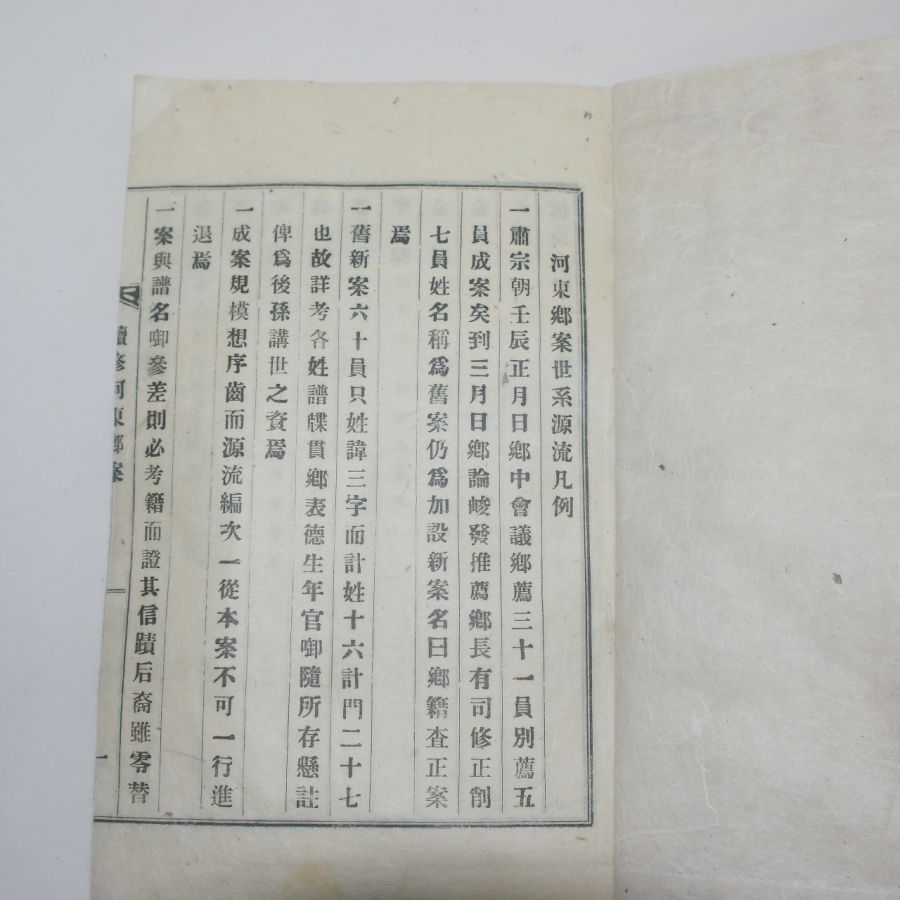 河東鄕案世系源流凡例
一肅宗朝壬辰正月日鄕中會議鄕薦三十一員別薦五
員成案矣到三月日鄕論峻發推薦鄕長有司修正創
七員姓名稱爲舊案仍爲加設新案名曰鄕籍査正案
焉
一舊新案六十員只姓諱三字而計姓十六計門二十七
也故詳考各姓譜牒貫鄕表德生年官啣隨所存懸註
俾爲後孫講世之資焉
一成案規模想序齒而源流編次一從本案不可一行進
退焉
一案與譜名啣參差則必考籍而證其信蹟后裔雖零替
續修河東鄕案
一